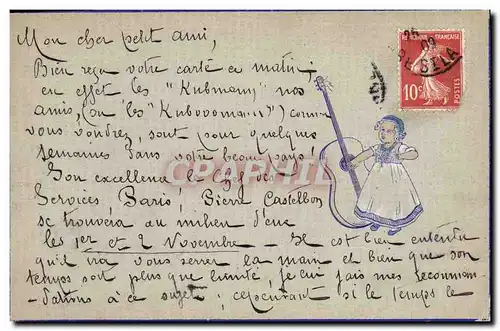 Mon cher petit ami,
Bien reçu votre carte ce matin;
en effet les "Kubmann" nos
amis, (ou les "Kubovomann") comme
vous voudrez, sont pour quelques
semaines dans votre beau pays!
Son excellence le chef des
Services Paris, Pierre Castelbon
se trouvera au milieu d'eux
les 1er et 2 Novembre - Il est bien entendu
qu'il ira vous serrer la main et bien que son
temps soit plus que limité, je lui fais mes recomman
-dations à ce sujet; cependant si le temps le
RÉPUBLIQUE FRANÇAISE
10c
POSTES
CPAPHIL